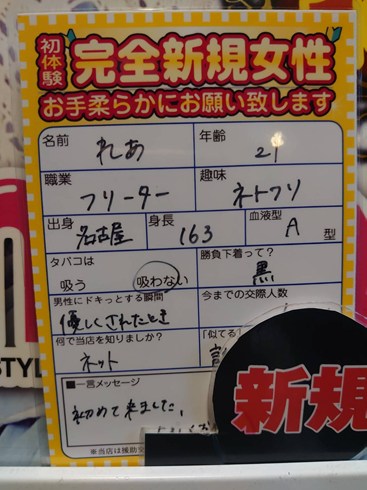 初体験
完全新規女性
お手柔らかにお願い致します
名前 れあ
年齢 21
職業 フリーター
趣味 ネトフリ
出身 名古屋
身長 163
血液型 A 型
タバコは
吸う 吸わない
勝負下着って?
黒
男性にドキっとする瞬間
優しくされたとき
今までの交際人数
何で当店を知りましたか?
ネット
「似てる」
■一言メッセージ
初めて来ました。
新規
※当店は援助
STYL